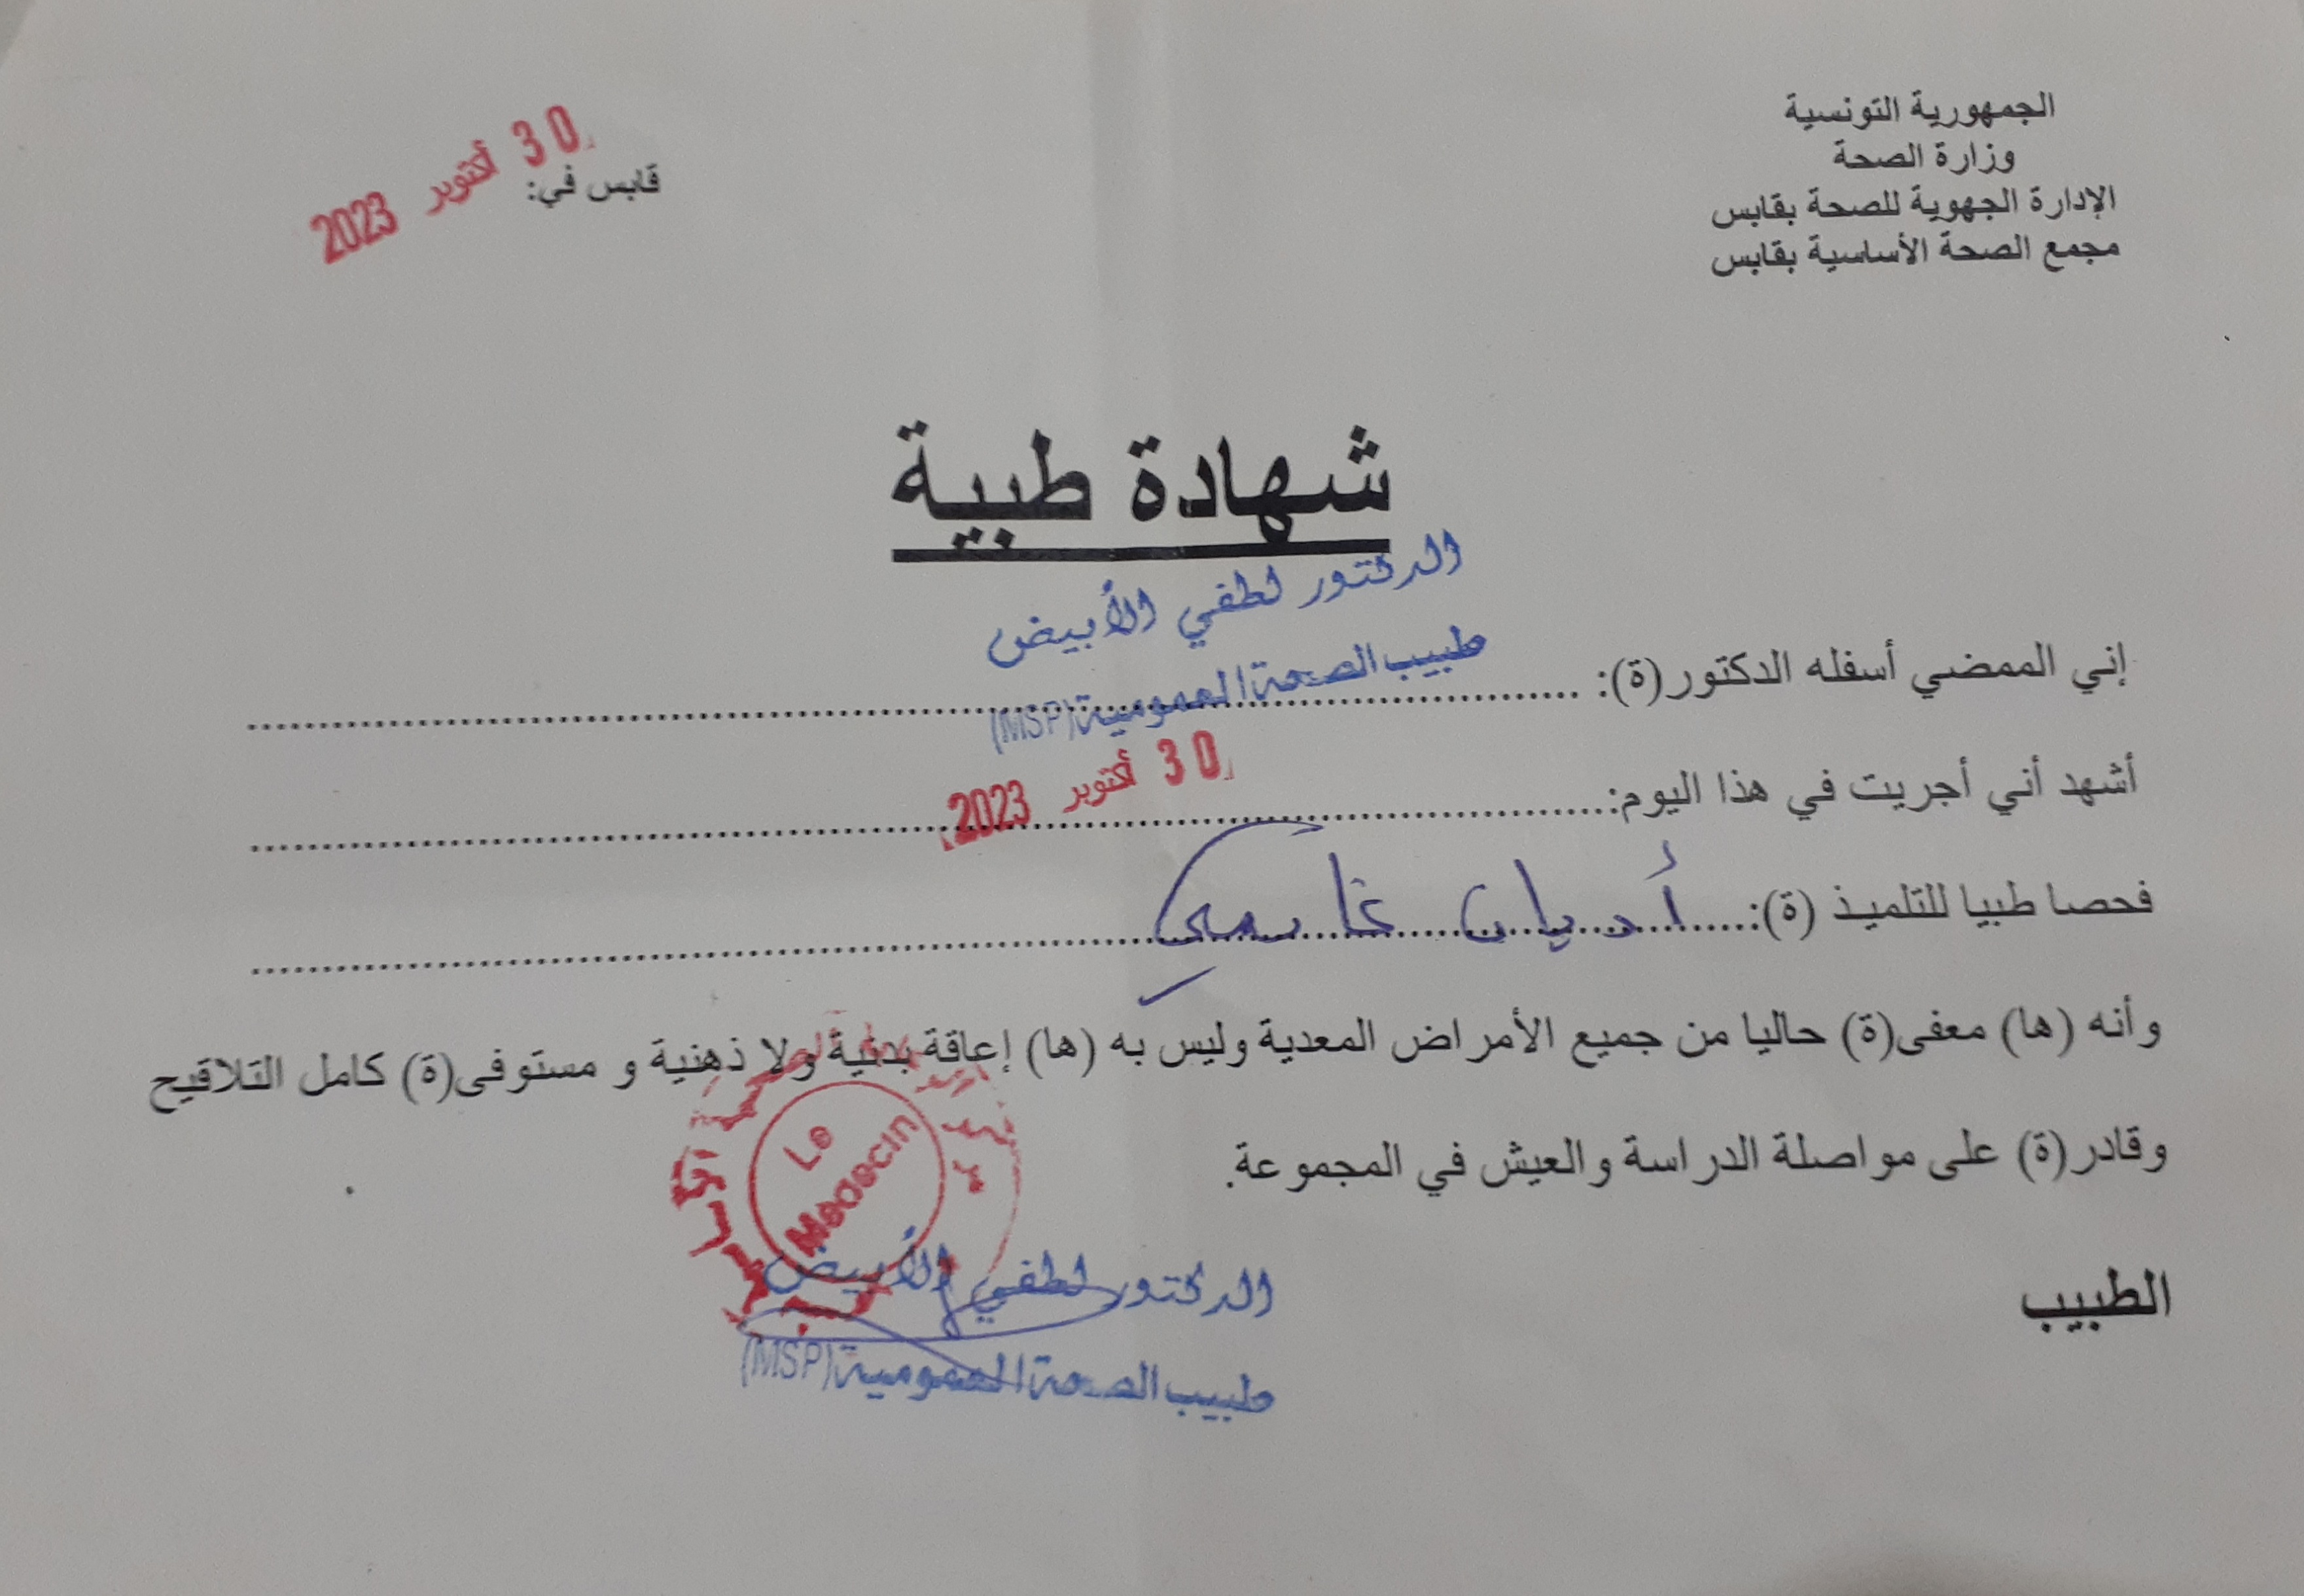 الجمهورية التونسية
وزارة الصحة
الإدارة الجهوية للصحة بقابس
مجمع الصحة الأساسية بقابس
قابس في: 30 أكتوبر 2023
شهادة طبية
الدكتور لطفي الأبيض
طبيب الصحة العمومية (MSP)
إني الممضي أسفله الدكتور(ة):
أشهد أني أجريت في هذا اليوم: 30 أكتوبر 2023
فحصا طبيا للتلميذ (ة):
وأنه (ها) معفى(ة) حاليا من جميع الأمراض المعدية وليس به (ها) إعاقة بدنية ولا ذهنية و مستوفى(ة) كامل التلاقيح
وقادر(ة) على مواصلة الدراسة والعيش في المجموعة.
Le
Médecin
الطبيب
الدكتور لطفي الأبيض
طبيب الصحة العمومية (MSP)